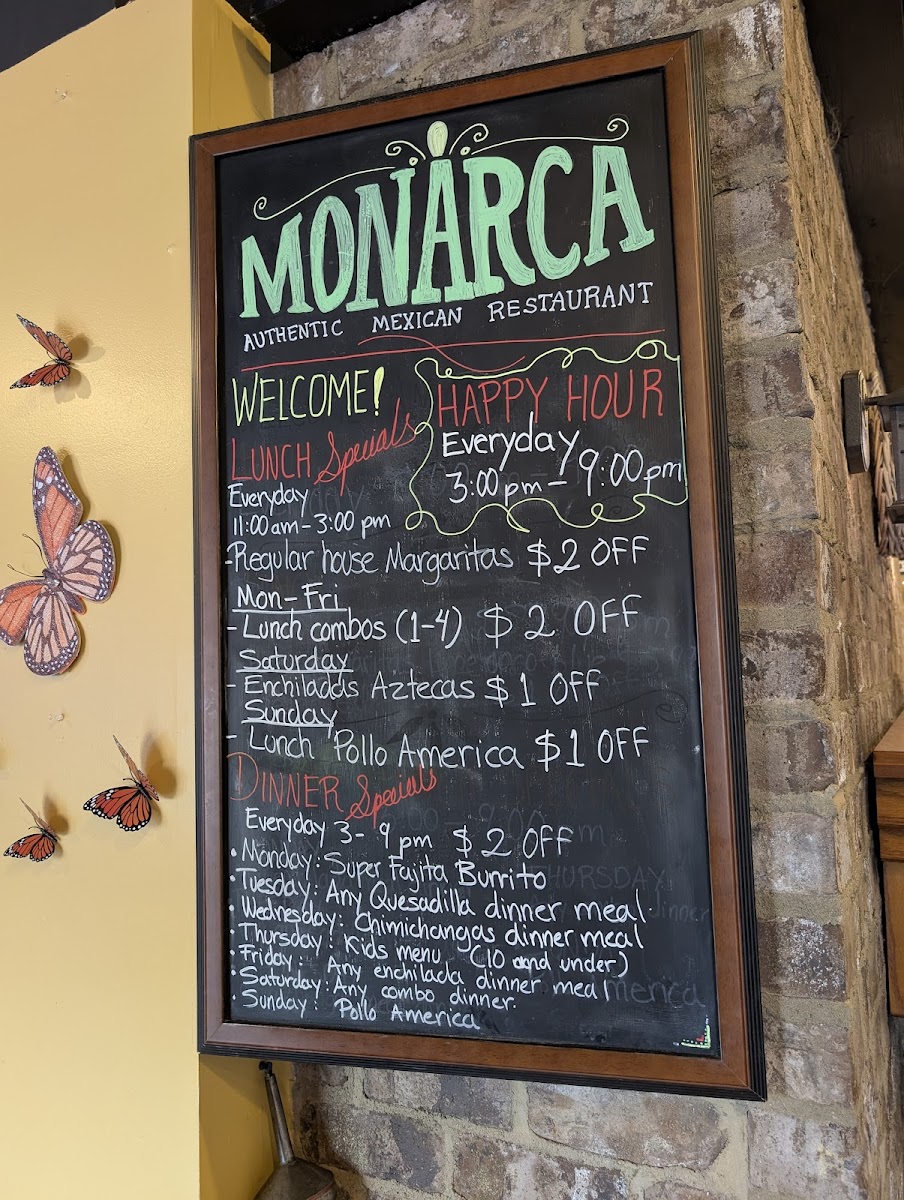 MONARCA
AUTHENTIC MEXICAN RESTAURANT
WELCOME!
HAPPY HOUR
Everyday
3:00 pm - 9:00 pm
LUNCH Specials
Everyday
11:00 am - 3:00 pm
-Regular house Margaritas $2 OFF
Mon-Fri
- Lunch combos (1-4) $2 OFF
Saturday
- Enchiladas Aztecas $1 OFF
Sunday
- Lunch Pollo America $1 OFF
DINNER Specials
Everyday 3-9 pm $2 OFF
• Monday: Super Fajita Burrito
• Tuesday: Any Quesadilla dinner meal.
• Wednesday: Chimichangas dinner meal
• Thursday: Kids menu (10 and under)
• Friday: Any enchilada dinner meal
• Saturday: Any combo dinner.
• Sunday: Pollo America